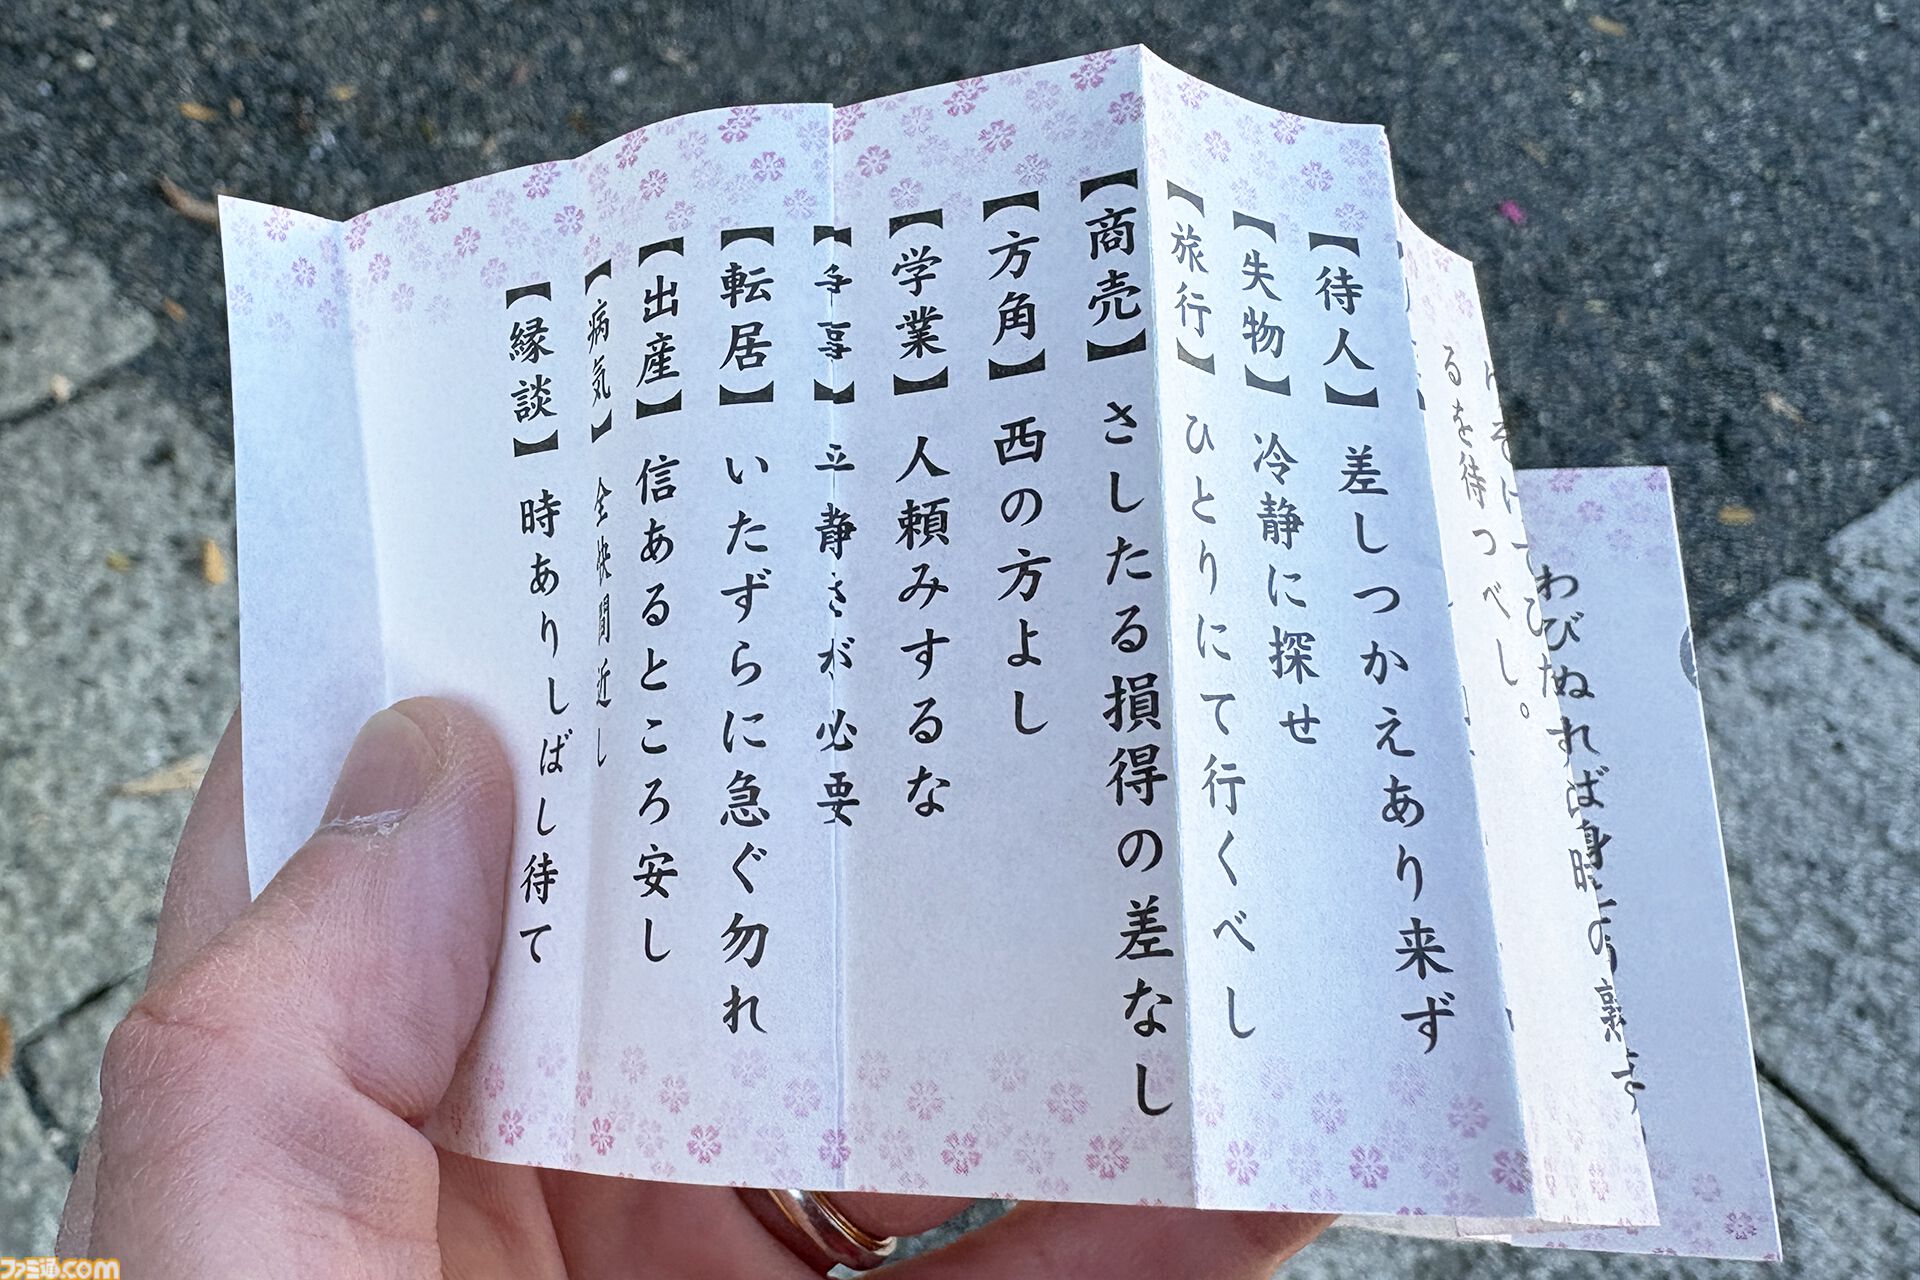 わびぬれば身
るを待つべし。
【待人】差しつかえあり来ず
【失物】冷静に探せ
【旅行】ひとりにて行くべし
【商売】さしたる損得の差なし
【方角】西の方よし
【学業】人頼みするな
静さが必要
【転居】いたずらに急ぐ勿れ
【出産】信あるところ安し
【病気】全快間近し
【縁談】時ありしばし待て
ファミ通.com